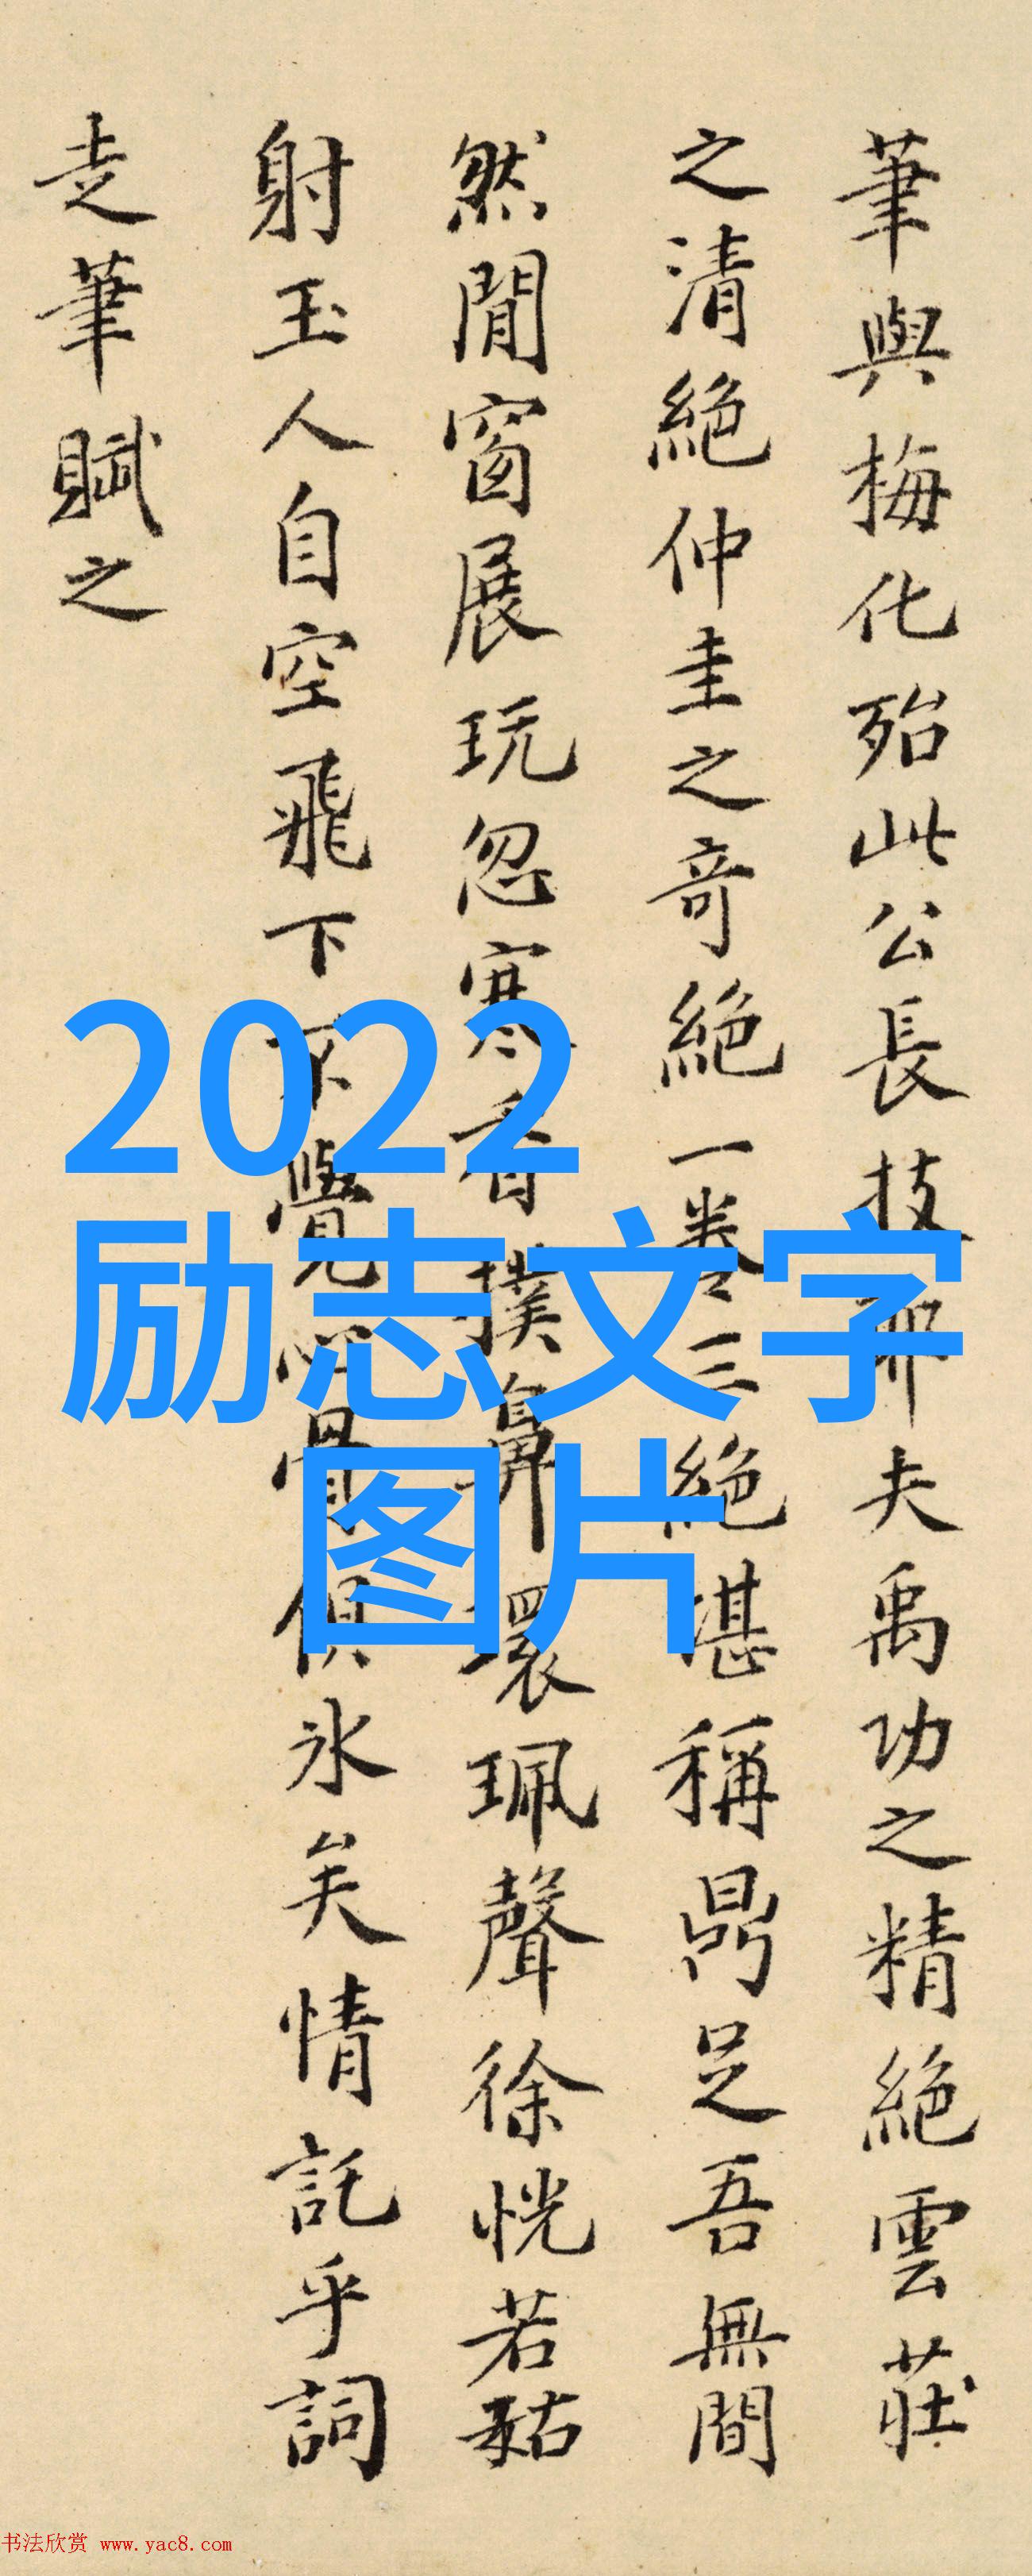 筆與梅化殆此公長技耶夫禹功之精絕雲莊
之清絕仲圭之奇絕一卷三絕堪稱鼎足吾無間
然閒窗展玩忽寒香撲鼻環珮聲徐恍若
射玉人自空飛下不覺骨俱冰矣情託乎詞
走筆賦之
2022
励志文字
图片
书法欣赏 www.yac8.com